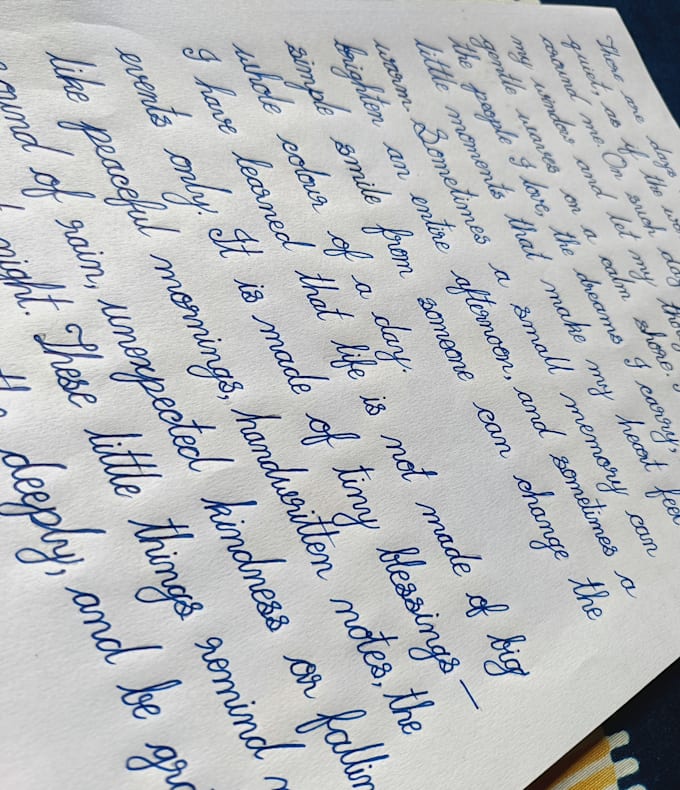 There are days
quiet, as if the
around me. On such day
my window and let my
gentle waves on a calm shore.
the people I love, the dreams I carry,
little moments that make my heart feel
warm. Sometimes a small memory can
brighten an entire afternoon, and sometimes a
simple smile from someone can change the
whole colour of a day.
I have learned that life is not made of big
events only. It is made of tiny blessings—
like peaceful mornings, handwritten notes, the
sound of rain, unexpected kindness or
night. These little things remind
deeply, and be